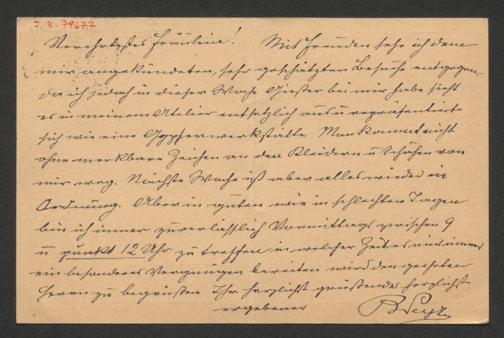 I. N. 79677
Verehrtestes Fräulein! Mit Freuden sehe ich dem
mir angekündeten, sehr geschätzten Besuche entgegen,
da ich jedoch in dieser Woche Gießer bei mir habe sieht
es in meinem Atelier entsetzlich aus u repräsentiert
sich wie eine Gypserwerkstätte. Man kommt nicht
ohne merkbare Zeichen an den Kleidern u Schuhen von
mir weg. Nächste Woche ist aber alles wieder in
Ordnung. Aber in guten wie in schlechten Tagen
bin ich immer zuverlässlich Vormittags zwischen 9
u punkt 12 Uhr zu treffen, in welcher Zeit es mir immer
ein besonderes Vergnügen bereiten wird den geehrten
Herrn zu begrüßen Ihr herzlichst grüßender herzlichst
ergebener